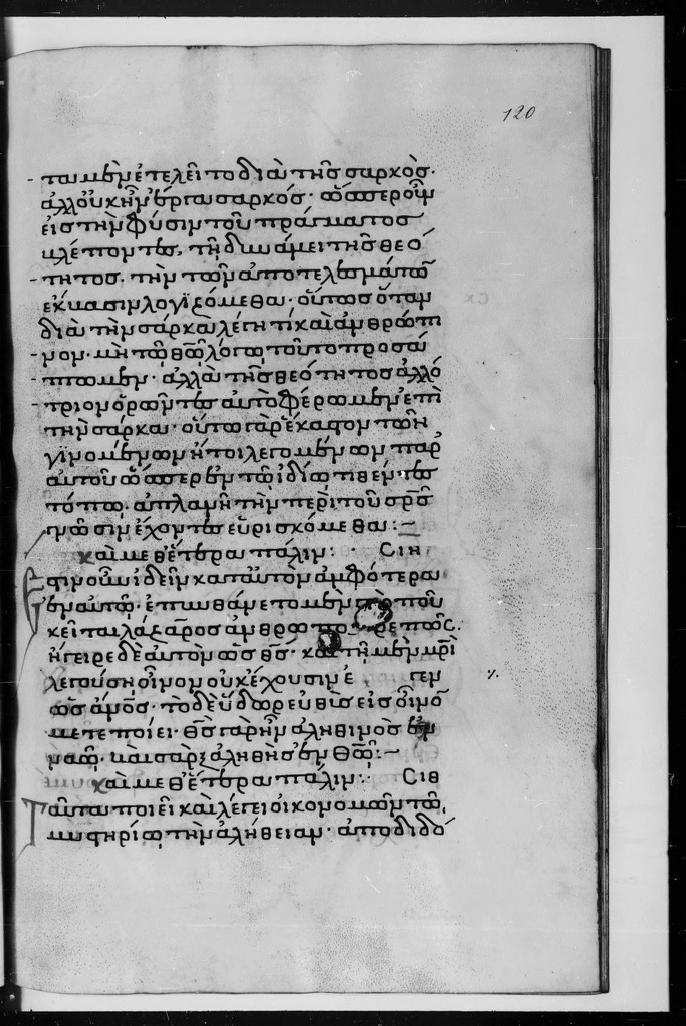 120
ταμὲν ἐτέλει τὸ διὰ τῆς σαρκός·
ἀλλ' οὐκ ἦν ἔργα σαρκός· ὥσπερ οὖν
εἰς τὴν φύσιν τοῦ πράγματος
βλέποντες, τῇ δυνάμει τῆς θεό
τητος. τὴν τῶν ἀποτελεσμάτων
ἔκβασιν λογιζόμεθα· οὕτως ὅταν
διὰ τὴν σάρκα λέγη τι καὶ ἀνθρώπι
νον· μὴ τῶ θῶ λόγω τοῦτο προσά
πτωμεν· ἀλλὰ τῆς θεότητος ἀλλό
τριον ὁρῶντες αὐτὸ φέρωμεν ἐπὶ
τὴν σάρκα· οὕτω γὰρ ἕκαστον τῶν ἢ
γινομένων ἤτοι λεγομένων παρ
αὐτοῦ ὥσπερ ἐν τῶ ἰδίω τιθέντες
τόπω. ἀπλανῆ τὴν περὶ τοῦ σρς
γνῶσιν ἔχοντες εὑρισκόμεθα:~
καὶ μεθ' ἕτερα πάλιν: σιη
Ἔστιν οὖν ἰδεῖν κατ' αὐτὸν ἀμφότερα
ἐν αὐτῶ· ἐπυνθάνετο μὲν ποῦ
κεῖται λάζαρος ἀνθρωπο
ἤγειρε δὲ αὐτὸν ὡς θς· καὶ τῇ μὲν μρὶ
λεγούση οἶνον οὐκ ἔχουσιν ἔ γεν
ὡς ἀνος· τὸ δὲ ὕδωρ εὐθὺς εἰς οἶνον
μετεποίει· θς γὰρ ἦν ἀληθινὸς ἐν
καὶ σὰρξ ἀληθὴς ἐν θῶ:~
καὶ μεθ' ἕτερα πάλιν: σιθ
Ταῦτα ποιεῖ καὶ λέγει οἰκονομῶν τῶ
μυστηρίω τὴν ἀλήθειαν· ἀποδιδο